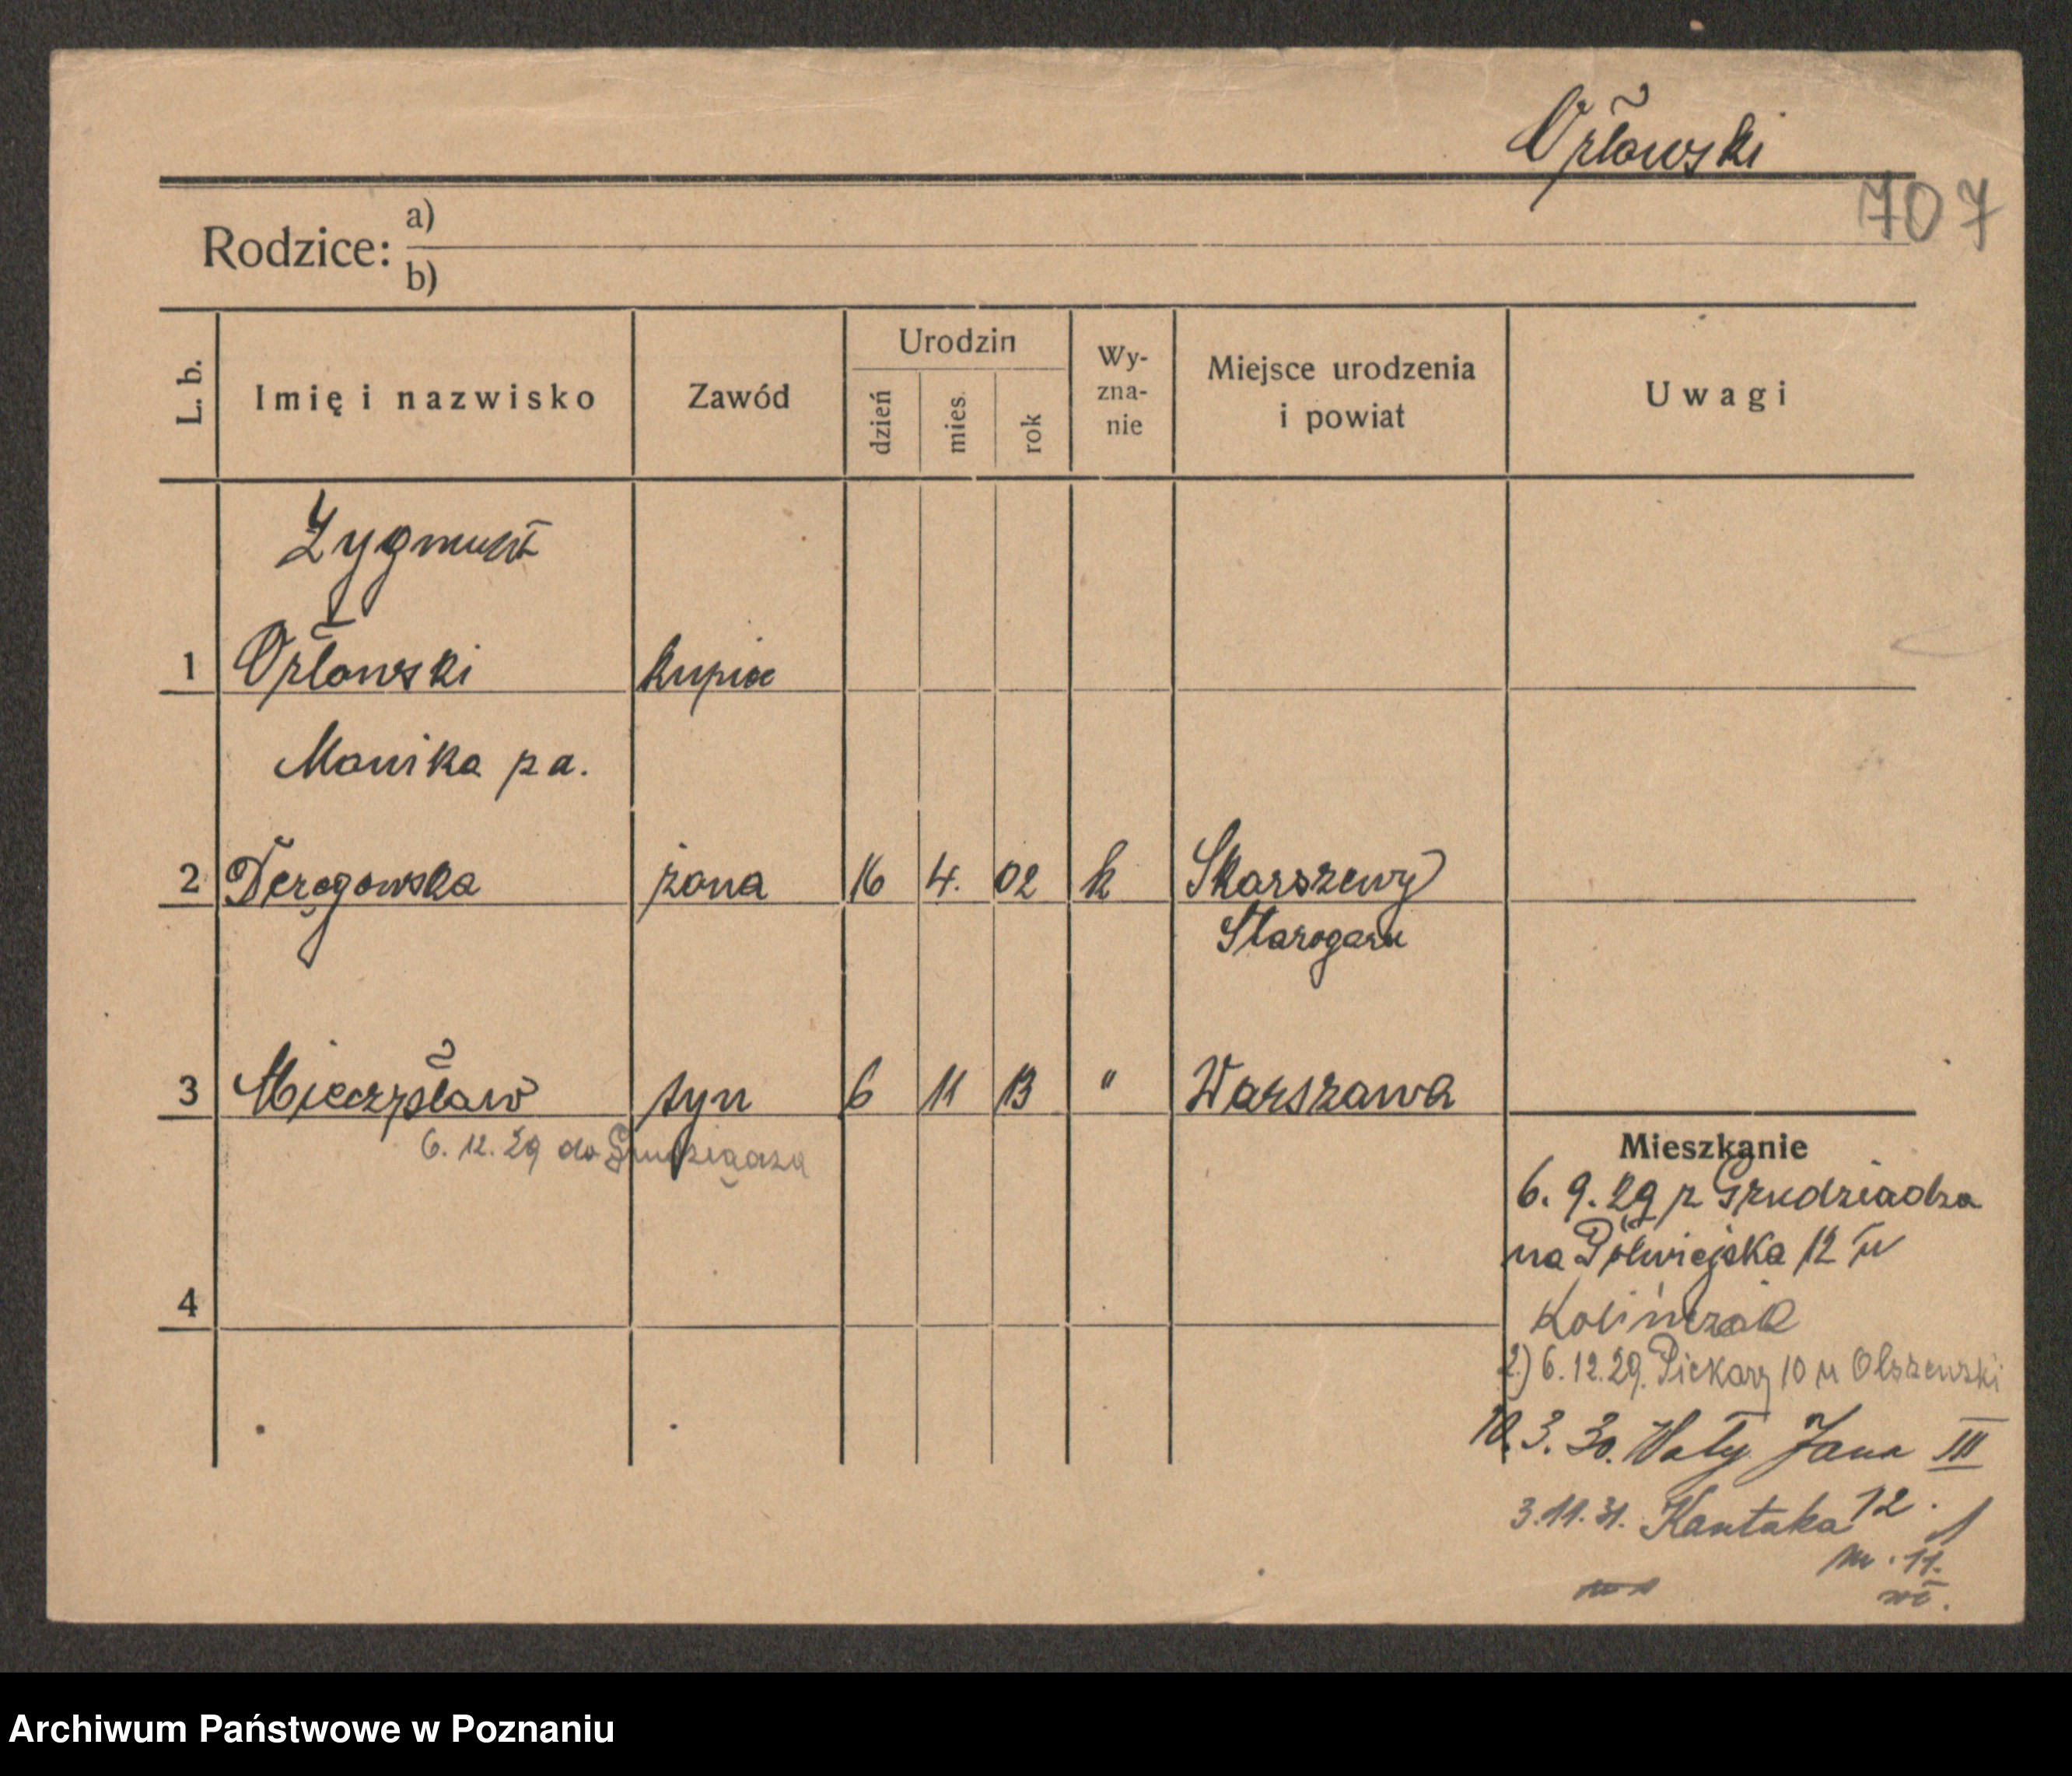 Orłowski
707
Rodzice: a)
b)
L. b.
Imię i nazwisko
Zawód
Urodzin
dzień
mies.
rok
Wy-
zna-
nie
Miejsce urodzenia
i powiat
Uwagi
Zygmunt
1 Orłowski kupiec
Monika za.
2 żona 16 4. 02 k Skarszewy
Starogard
3 Mieczysław syn 6 11 13 " Warszawa
6. 12. 29 do Grudziądza
4
Mieszkanie
6. 9. 29 z Grudziadza
na Półwiejska 12 u
Kolińczak
2.) 6. 12. 29. Piekary 10 u Olszewski
10. 3. 30. Wały Jana III
3. 11. 31. Kantaka 12.
m. 11.
Archiwum Państwowe w Poznaniu